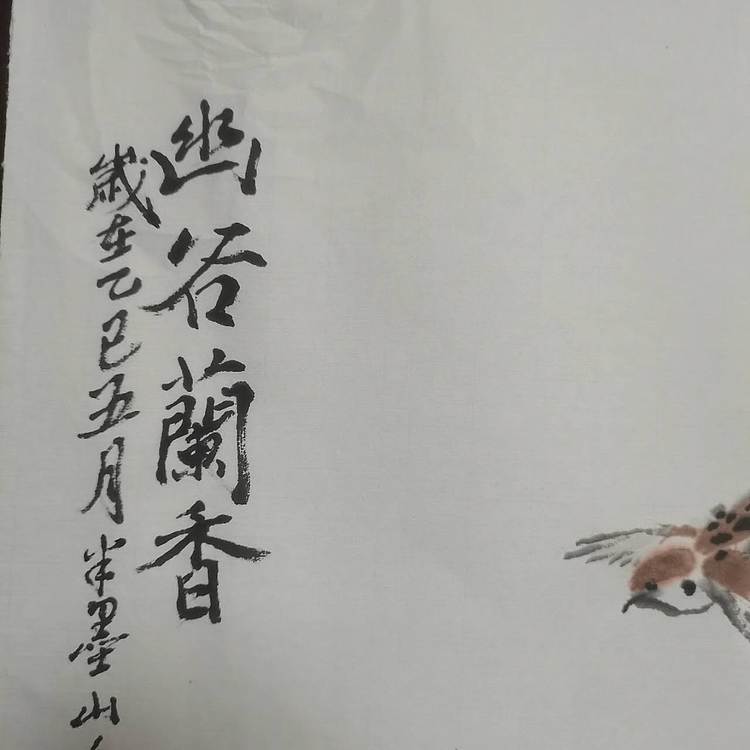 幽谷蘭香
歲在乙巳五月半墨山